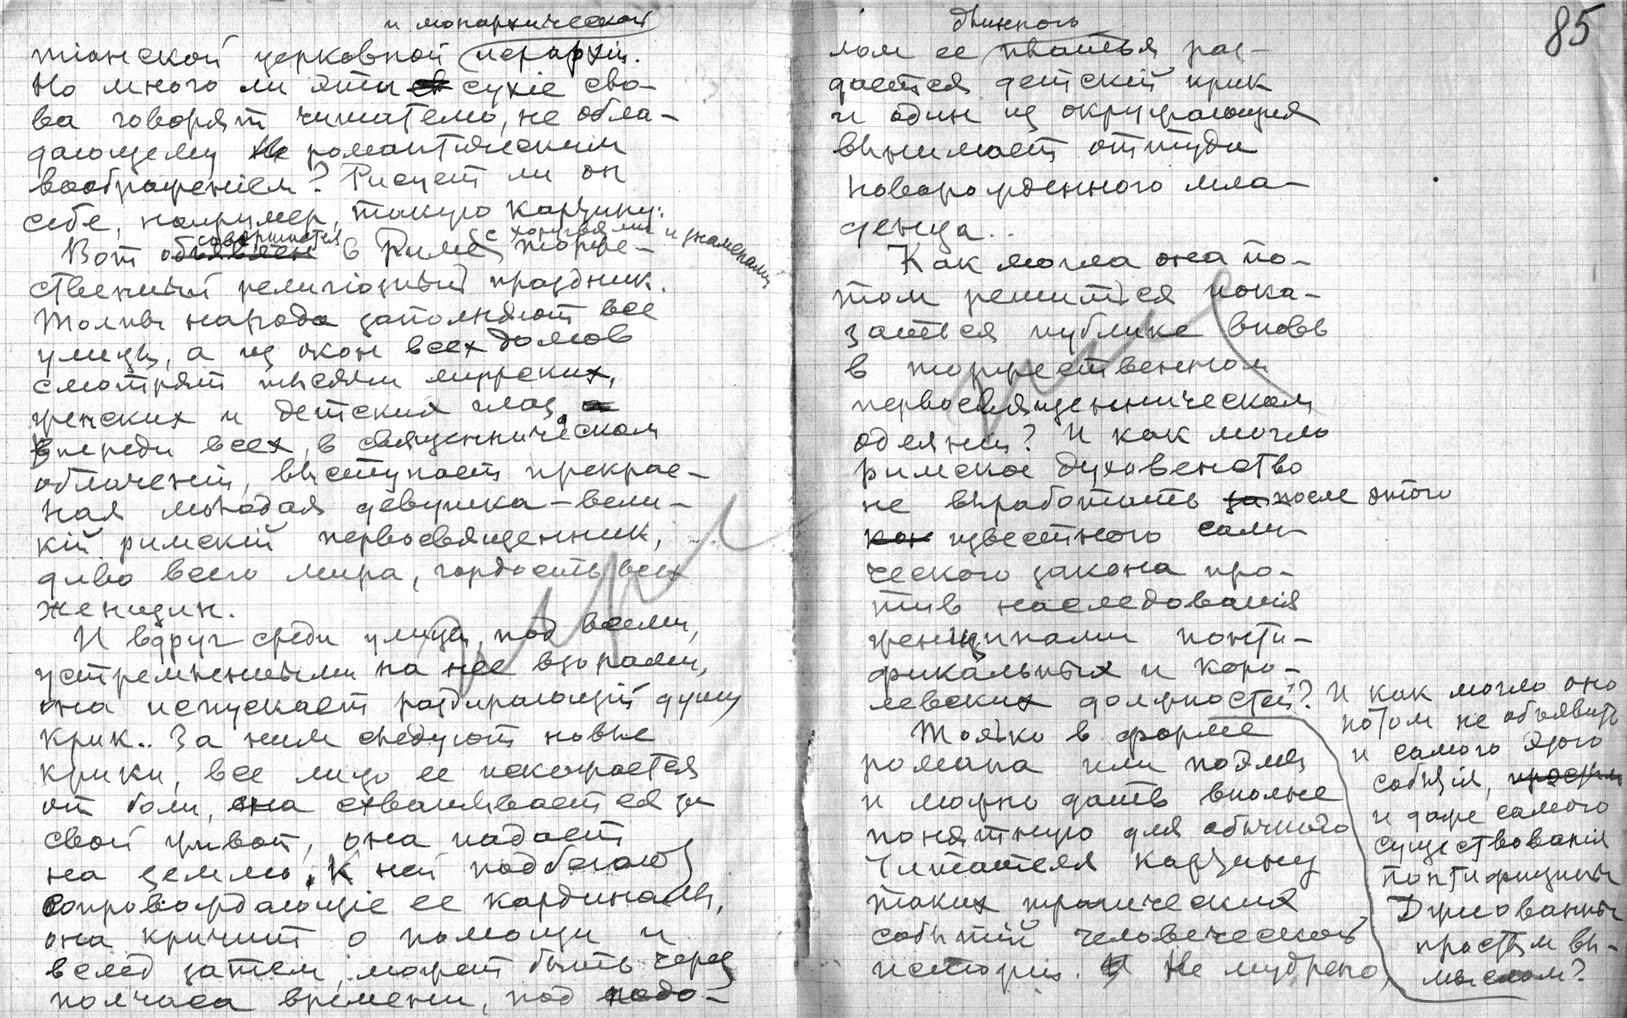 и монархической
тіанской церковной іерархіи.
Но много ли эти сухіе сло-
ва говорят читателю, не обла-
дающему романтическим
воображеніем? Рисует ли он
себе, например, такую картину:
совершается с хоругвями и знаменами
Вот объявлен в Риме торже-
ственный религіозный праздник.
Толпы народа заполняют все
улицы, а из окон всех домов
смотрят тысячи мужских,
женских и детских глаз.
Впереди всех, в священническом
облаченіи, выступает прекрас-
ная молодая девушка — вели-
кій римскій первосвященник,
диво всего мира, гордость всех
женщин.
И вдруг среди улицы, под всеми,
устремленными на нее взорами,
она испускает раздирающій душу
крик.. За ним следуют новые
крики, все лицо ее искажается
от боли, она схватывается за
свой живот, она падает
на землю. К ней подбегают
сопровождающіе ее кардиналы,
она кричит о помощи и
вслед затем, может быть через
полчаса времени, под подо-
85
длинного
лом ее платья раз-
дается детскій крик
и один из окружающих
вынимает оттуда
новорожденного мла-
денца..
Как могла она по-
том решиться пока-
заться публике вновь
в торжественном
первосвященническом
одеяніи? И как могло
римское духовенство
не выработать за после этого
как известного сали-
ческого закона про-
тив наследованія
женщинами понти-
фикальных и коро-
левских должностей?
Только в форме
романа или поэмы
и можно дать вполне
понятную для обычного
читателя картину
таких трагических
событій человеческой
исторіи. И не мудрено,
И как могло оно
потом не объявить
и самого этого
событія, простым
и даже самого
существованія
понтифицины
Джиованны
простым вы-
мыслом?